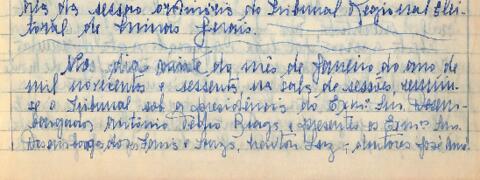 Ata da sessão ordinária do Tribunal Regional Elei-
toral de Minas Gerais.
No dia vinte do mês de Janeiro do ano de
mil novecentos e sessenta na sala de sessões, reuniu-
se o Tribunal sob a presidência do Exmo. Snr. Desem-
bargador Antônio Pedro Braga, presentes os Exmos. Snrs.
Desembargadores e Newton Luz, doutores José